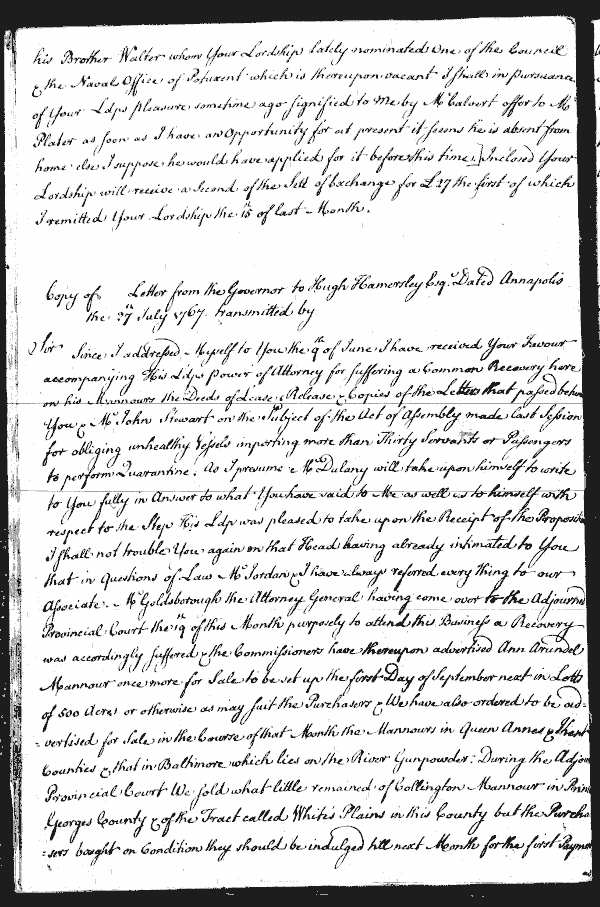 his Brother Walter whom Your Lordship lately nominated One of the Council
& the Naval Office of Potuxent which is thereupon vacant I shall in pursuance
of Your Ldps pleasure sometime ago signified to me by Mr Calvert offer to Mr
Plater as soon as I have an Opportunity for at present it seems he is absent from
home else I suppose he would have applied for it before this time. Inclosed Your
Lordship will receive a Second of the Sett of Exchange for £27 the first of which
I remitted Your Lordship the 15th of last Month.
Copy of Letter from the Governor to Hugh Hamersley Esqr. Dated Annapolis
the 27th July 1767. transmitted by
Sir Since I addressed Myself to You the 9th of June I have received Your Favour
accompanying His Ldps Power of Attorney for suffering a Common Recovery here
on his Mannours the Deeds of Lease & Release & Copies of the Letters that passed between
You & Mr John Stewart on the Subject of the Act of Assembly made last Session
for obliging unhealthy Vessels importing more than Thirty Servants or Passengers
to perform Quarantine. As I presume Mr Dulany will take upon himself to write
to You fully in Answer to what You have said to Me as well as to himself with
respect to the Step His Ldp was pleased to take upon the Receipt of the Proposit
I shall not trouble You again on that Head having already intimated to You
that in Questions of Law Mr Jordan & I have always referred every thing to our
Associate. Mr Goldsborough the Attorney General having come over to the Adjourned
Provincial Court the 19th of this Month purposely to attend this Business a Recovery
was accordingly suffered & the Commissioners have thereupon advertised Ann Arundel
Mannour once more for Sale to be set up the first Day of September next in Lotts
of 500 Acres or otherwise as may suit the Purchasers & We have also ordered to be ad-
=vertised for Sale in the Course of that Month the Mannours in Queen Annes & Kent
Counties & that in Baltimore which lies on the River Gunpowder: During the Adjour
Provincial Court We sold what little remained of Collington Mannour in Prin
Georges County & of the Tract called White's Plains in this County but the Purcha
=sers bought on Condition they should be indulged till next Month for the first Paymen